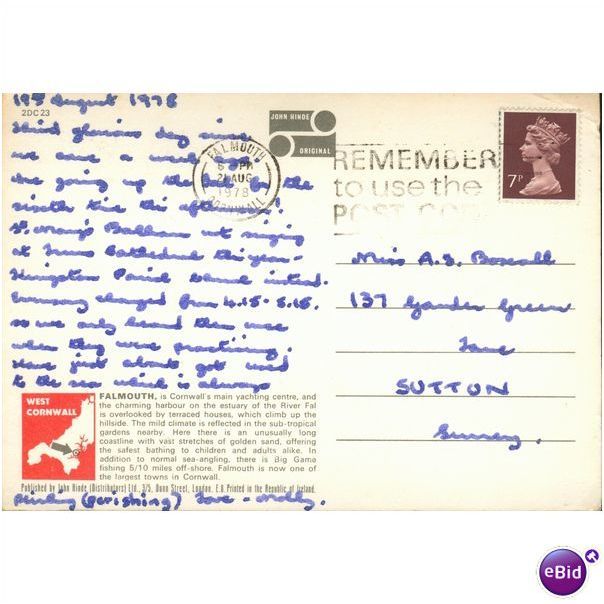 19th August 1978
2DC23
Third glorious day since
we came a week ago.
Are going up the Fal for the
time this afternoon.
St. Mary's Balham not singing
at Truro Cathedral this year -
Kensington Parish Church instead.
Evensong changed from 4.15 - 5.15.
so we only heard them once
when they were practising.
Have just about got used
to the sea which is always
perishing (perishing) Love - Molly.
JOHN HINDE
ORIGINAL
FALMOUTH
PM
21 AUG
1978
CORNWALL
REMEMBER
to use the
POST CODE
7P
Miss A.S.
137 Gander Green
Lane
SUTTON
Surrey.
WEST
CORNWALL
FALMOUTH, is Cornwall's main yachting centre, and
the charming harbour on the estuary of the River Fal
is overlooked by terraced houses, which climb up the
hillside. The mild climate is reflected in the sub-tropical
gardens nearby. Here there is an unusually long
coastline with vast stretches of golden sand, offering
the safest bathing to children and adults alike. In
addition to normal sea-angling, there is Big Game
fishing 5/10 miles off-shore. Falmouth is now one of
the largest towns in Cornwall.
Published by John Hinde (Distributors) Ltd., 3/5, Dunn Street, London, E.8. Printed in the Republic of Ireland.
eBid